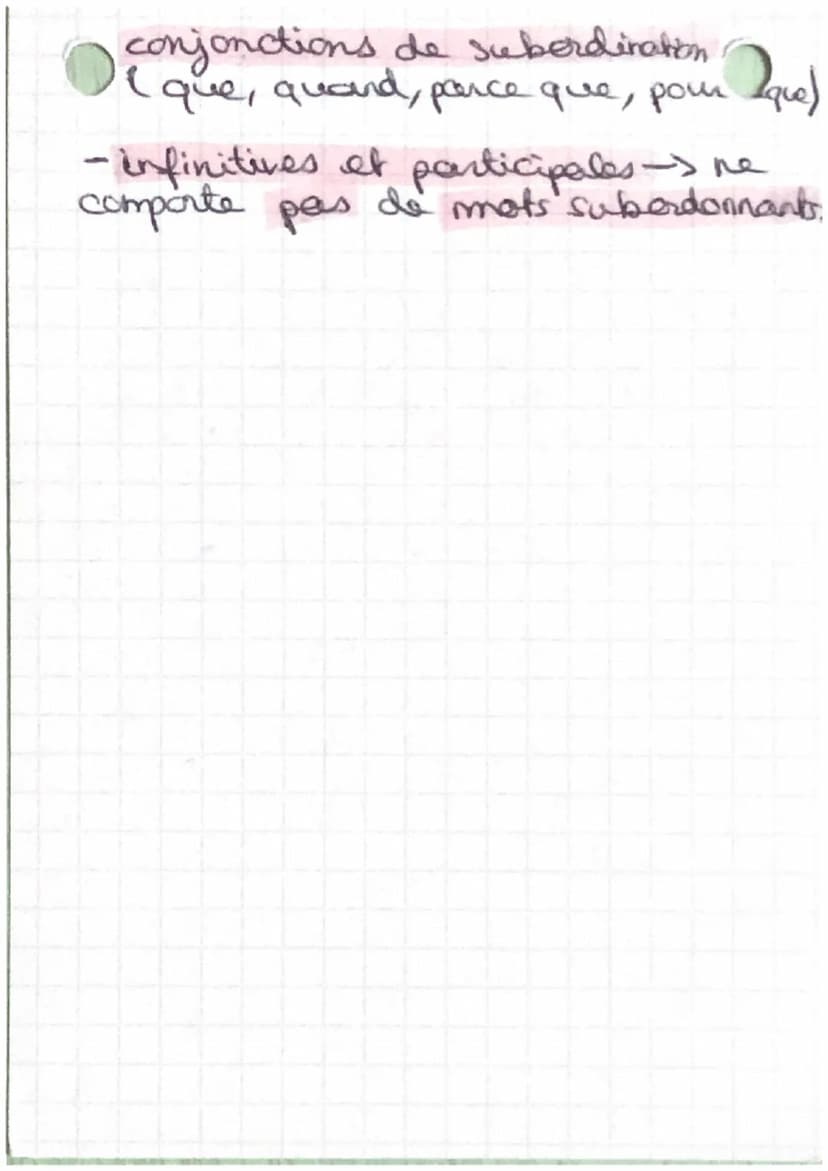 conjonctions de subordination
(que, quand, parce que, pour que)
- infinitives et participales → ne
comporte pas de mots subordonnants.